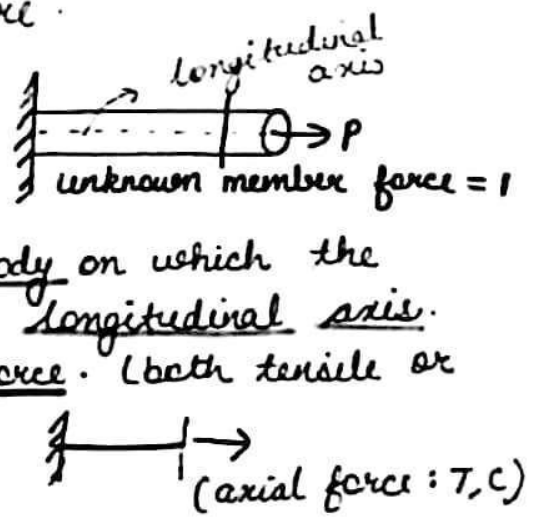 re.
longitudinal
axis
P
unknown member force = 1
ody on which the
longitudinal axis.
orce. (both tensile or
(axial force : T, C)